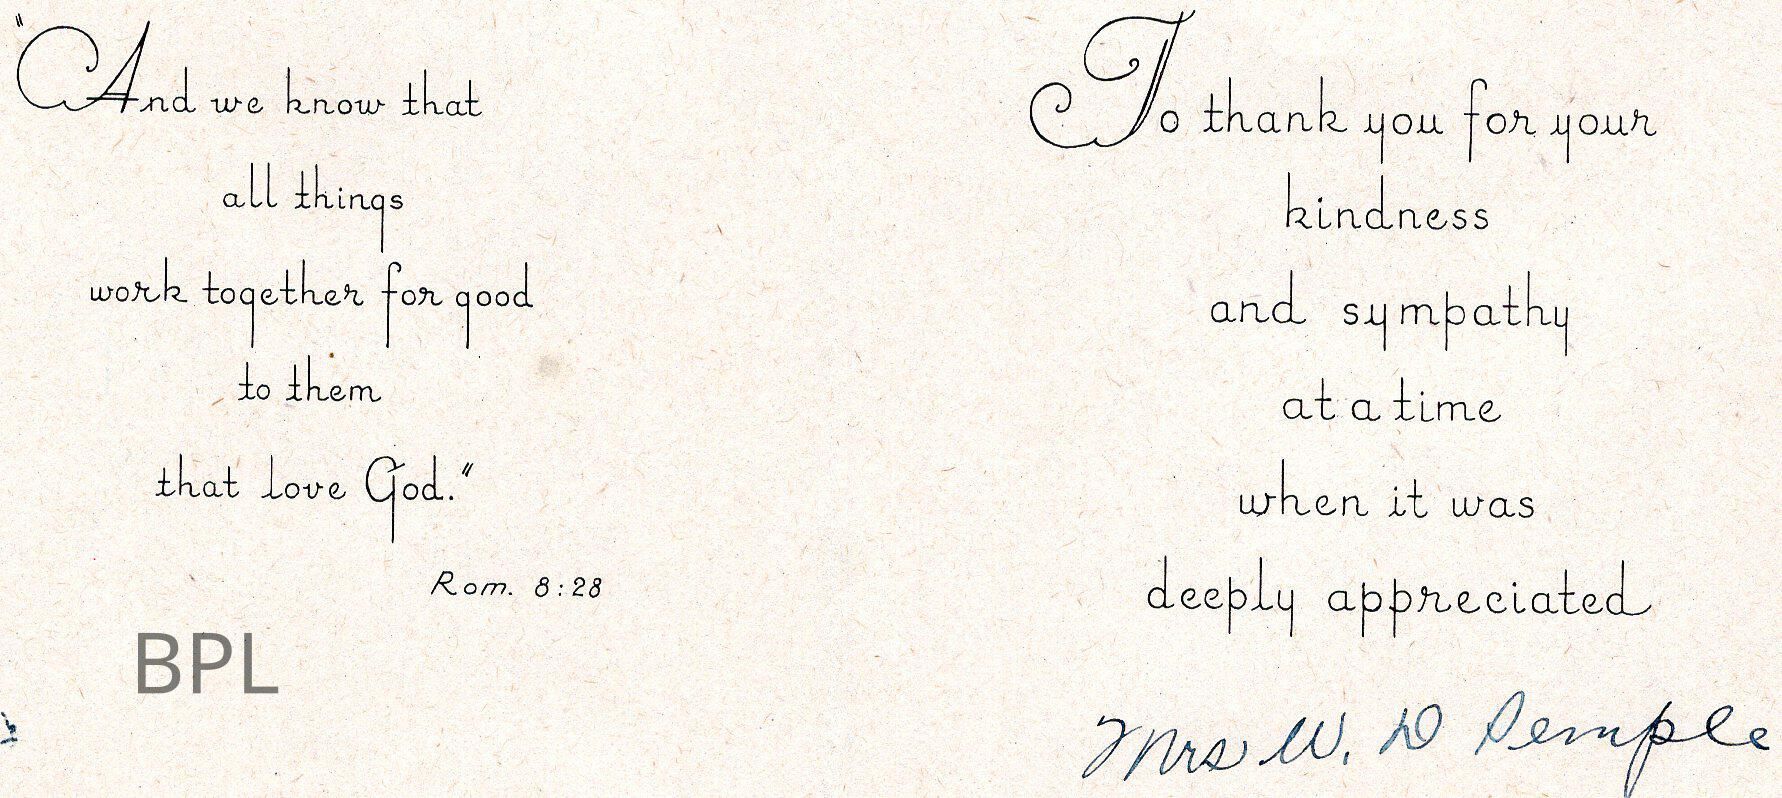 "And we know that
all things
work together for good
to them
that love God."
Rom. 8:28
BPL
To thank you for your
kindness
and sympathy
at a time
when it was
deeply appreciated
Mrs W. D Semple